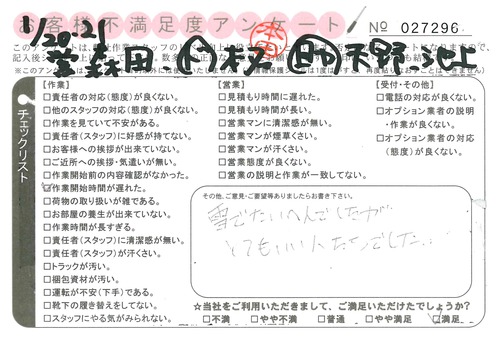 お客様不満足度アンケート
No 027296
1/2021
営 森田
本多
天野 池上
チェックリスト
【作業】
□責任者の対応(態度)が良くない。
□他のスタッフの対応(態度)が良くない。
□作業を見ていて不安がある。
□責任者(スタッフ)に好感が持てない。
□お客様への挨拶が出来ていない。
□ご近所への挨拶・気遣いが無い。
□作業開始前の内容確認がなかった。
□作業開始時間が遅れた。
□荷物の取り扱いが雑である。
□お部屋の養生が出来ていない。
□作業時間が長すぎる。
□責任者(スタッフ)に清潔感が無い。
□責任者(スタッフ)が汗さい。
□トラックが汚い。
□梱包資材が汚い。
□運転が不安(下手)である。
□靴下の履き替えをしてない。
□スタッフにやる気がみられない。
【営業】
□見積もり時間に遅れた。
□見積もり時間が長い。
□営業マンに清潔感が無い。
□営業マンが煙草くさい。
□営業マンが汗くさい。
□営業態度が良くない。
□営業の説明と作業が一致してない。
【受付・その他】
□電話の対応が良くない。
□オプション業者の説明
・作業が良くない。
□オプション業者の対応
(態度)が良くない。
その他、ご意見・ご要望等ありましたらお書き下さい。
雪でたいへんでしたが
とてもいい人たちでした...
☆当社をご利用いただきまして、ご満足いただけたでしょうか?
□不満 □やや不満 □普通 □やや満足 □満足